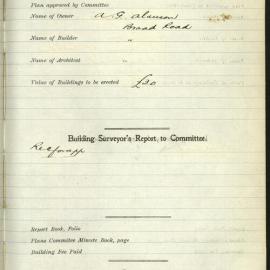 Plan approved by Committee
Name of Owner
Broad Road
Name of Builder "
Name of Architect "
Value of Buildings to be erected £30
Building Surveyor's Report to Committee.
Rec for app
Report Book, Folio
Plans Committee Minute Book, page
Building Fee Paid